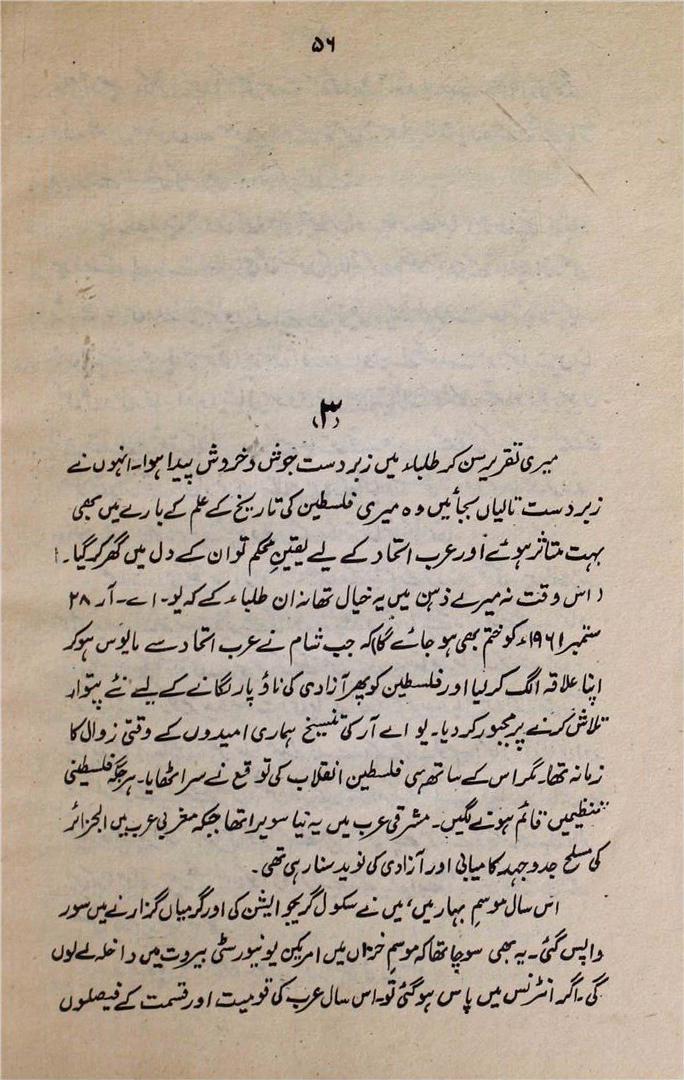 ۵۶
(۳)
میری تقریر سن کر طلباء میں زبردست جوش و خروش پیدا ہوا۔ انہوں نے
زبردست تالیاں بجائیں وہ میری فلسطین کی تاریخ کے علم کے بارے میں بھی
بہت متاثر ہوئے اور عرب اتحاد کے لیے یقینِ محکم تو ان کے دل میں گھر کر گیا۔
(اس وقت نہ میرے ذہن میں یہ خیال تھا نہ ان طلباء کے کہ یو۔ اے۔ آر ۲۸
ستمبر ۱۹۶۱ء کو ختم بھی ہو جائے گا) کہ جب شام نے عرب اتحاد سے مایوس ہو کر
اپنا علاقہ الگ کر لیا اور فلسطین کو پھر آزادی کی ناؤ پار لگانے کے لیے نئے پتوار
تلاش کرنے پر مجبور کر دیا۔ یو اے آر کی تنسیخ ہماری امیدوں کے وقتی زوال کا
زمانہ تھا۔ مگر اس کے ساتھ ہی فلسطین انقلاب کی توقع نے سر اٹھایا۔ ہر جگہ فلسطینی
تنظیمیں قائم ہونے لگیں۔ مشرقی عرب میں یہ نیا سویرا تھا جبکہ مغربی عرب میں الجزائر
کی مسلح جدوجہد کامیابی اور آزادی کی نوید سنا رہی تھی۔
اس سال موسمِ بہار میں، میں نے سکول گریجوایشن کی اور گرمیاں گزارنے میں سور
واپس گئی۔ یہ بھی سوچا تھا کہ موسمِ خزاں میں امریکن یونیورسٹی بیروت میں داخلہ لے لوں
گی۔ اگر انٹرنس میں پاس ہو گئی تو۔ اس سال عرب کی قومیت اور قسمت کے فیصلوں